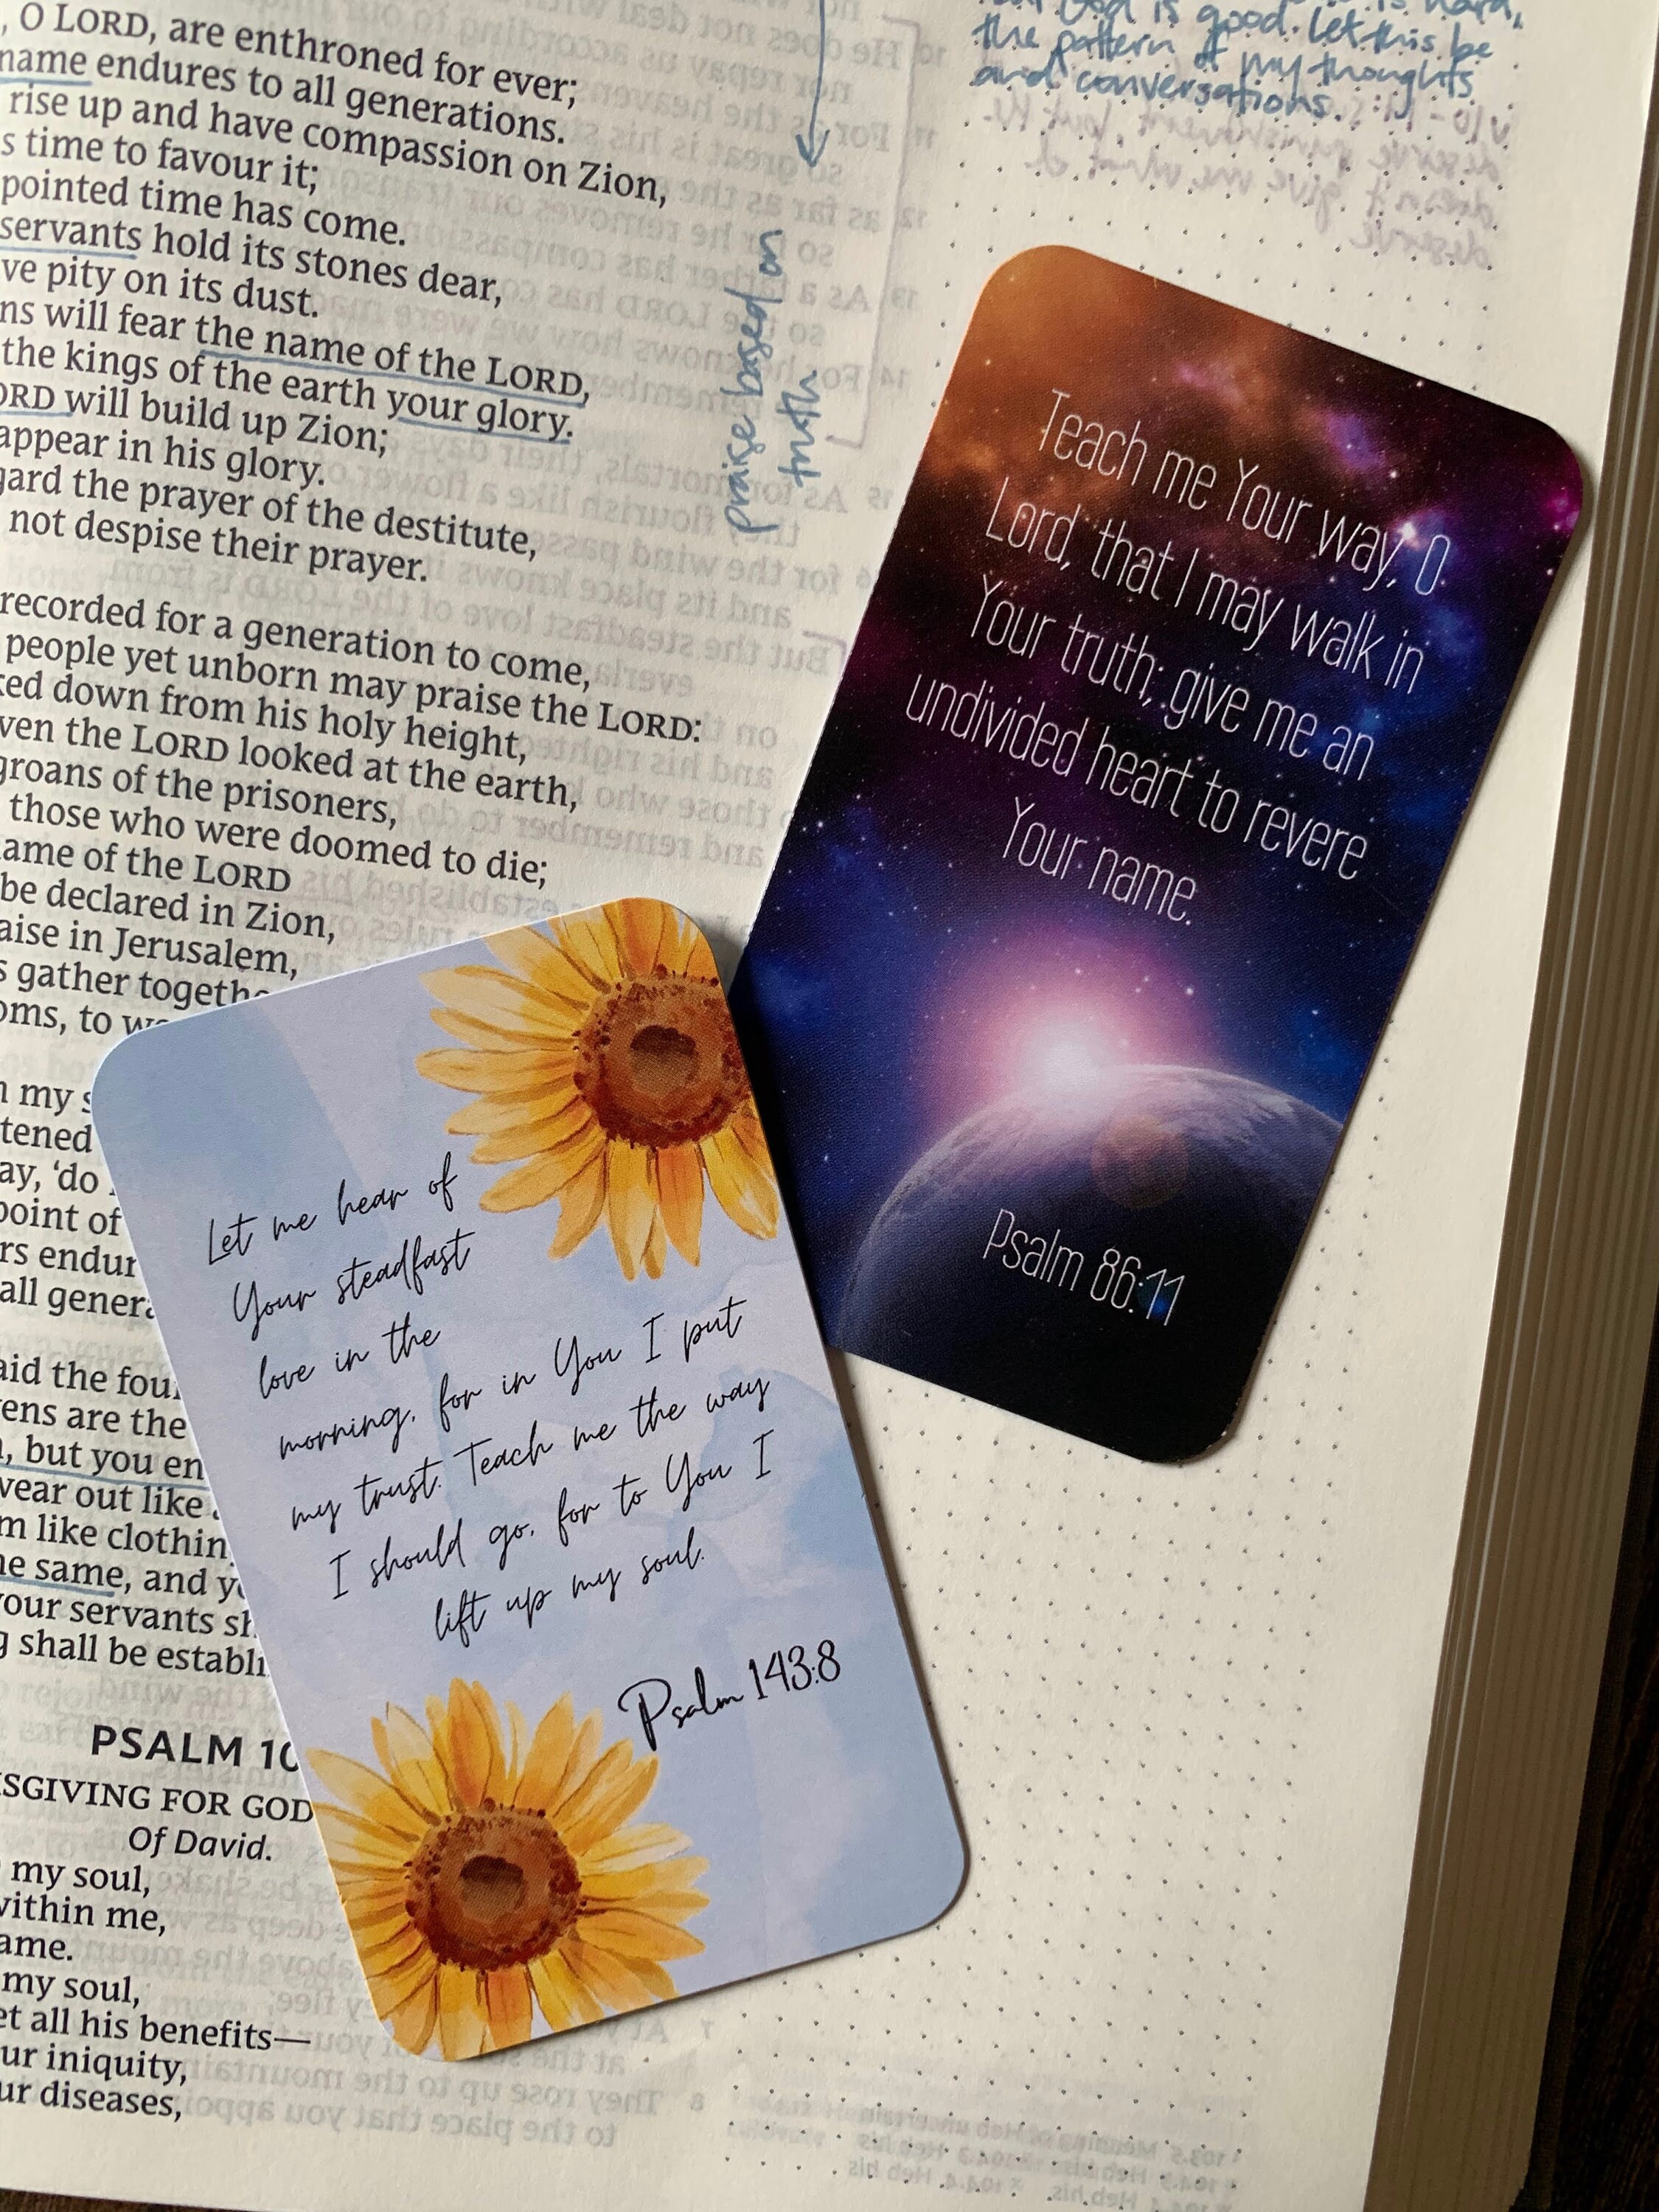 , O LORD, are enthroned for ever;
name endures to all generations.
rise up and have compassion on Zion,
s time to favour it;
pointed time has come.
servants hold its stones dear,
ve pity on its dust.
ns will fear the name of the LORD,
the kings of the earth your glory.
ORD will build up Zion;
appear in his glory.
gard the prayer of the destitute,
not despise their prayer.
recorded for a generation to come,
people yet unborn may praise the LORD:
ked down from his holy height,
ven the LORD looked at the earth,
groans of the prisoners,
those who were doomed to die;
ame of the LORD
be declared in Zion,
aise in Jerusalem,
s gather togethe
oms, to wo
my s
tened
ay, 'do
point of
rs endur
all genera
aid the foun
ens are the
, but you en
wear out like
m like clothin
he same, and yo
your servants sh
g shall be establi
PSALM 10
SGIVING FOR GOD
Of David.
my soul,
within me,
ame.
my soul,
et all his benefits—
ur iniquity,
ur diseases,
praise based on
truth
God is good. Let this be
the pattern of my thoughts
and conversations.
Teach me Your way, O
Lord, that I may walk in
Your truth; give me an
undivided heart to revere
Your name.
Psalm 86:11
Let me hear of
Your steadfast
love in the
morning, for in You I put
my trust. Teach me the way
I should go, for to You I
lift up my soul.
Psalm 143:8